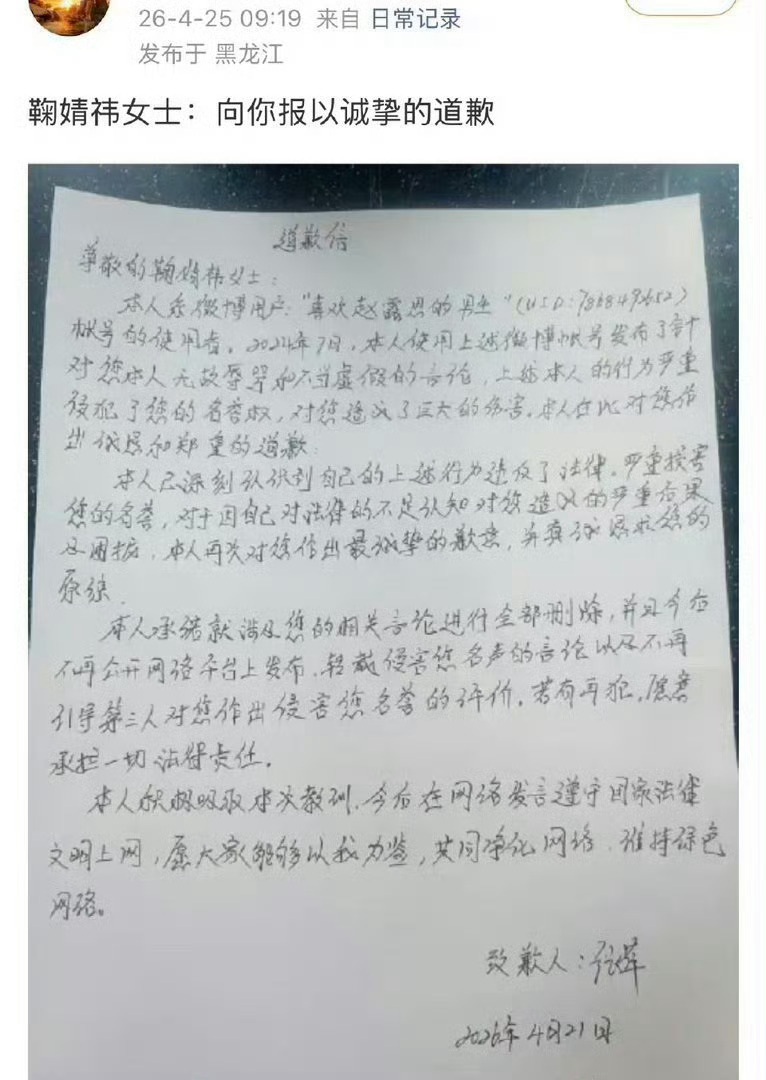 26-4-25 09:19 来自 日常记录
发布于 黑龙江
鞠婧祎女士：向你报以诚挚的道歉
道歉信
尊敬的鞠婧祎女士：
本人系微博用户："喜欢赵露思的男生"(UID:7868497652)
帐号的使用者。2024年7月，本人使用上述微博帐号发布了针
对您本人无故辱骂和不当虚假的言论，上述本人的行为严重
侵犯了您的名誉权，对您造成了巨大的伤害。本人在此对您作
出诚恳和郑重的道歉.
本人已深刻认识到自己的上述行为违反了法律，严重损害
您的名誉，对于因自己对法律的不足认知对您造成的严重后果
及困扰，本人再次对您作出最诚挚的歉意，并真诚恳求您的
原谅.
本人承诺就涉及您的相关言论进行全部删除，并且今后
不再公开网络平台上发布、转载侵害您名声的言论以及不再
引导第三人对您作出侵害您名誉的评价。若有再犯，愿意
承担一切法律责任。
本人积极吸取本次教训，今后在网络发言遵守国家法律
文明上网，愿大家能够以我为鉴，共同净化网络，维持绿色
网络。
致歉人：
2026年4月21日